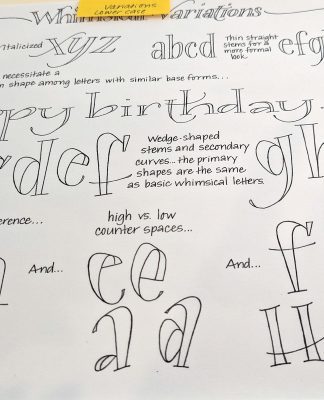 Variations
Lower case
Whimsical Variations
italicized xyz abcd Thin straight
stems for a
more formal
look. efg
necessitate a
shape among letters with similar base forms...
py birthday
def Wedge-shaped
stems and secondary
curves...the primary
shapes are the same
as basic whimsical letters. gh
erence... high vs. low
counter spaces...
And... ee And... f
aa H